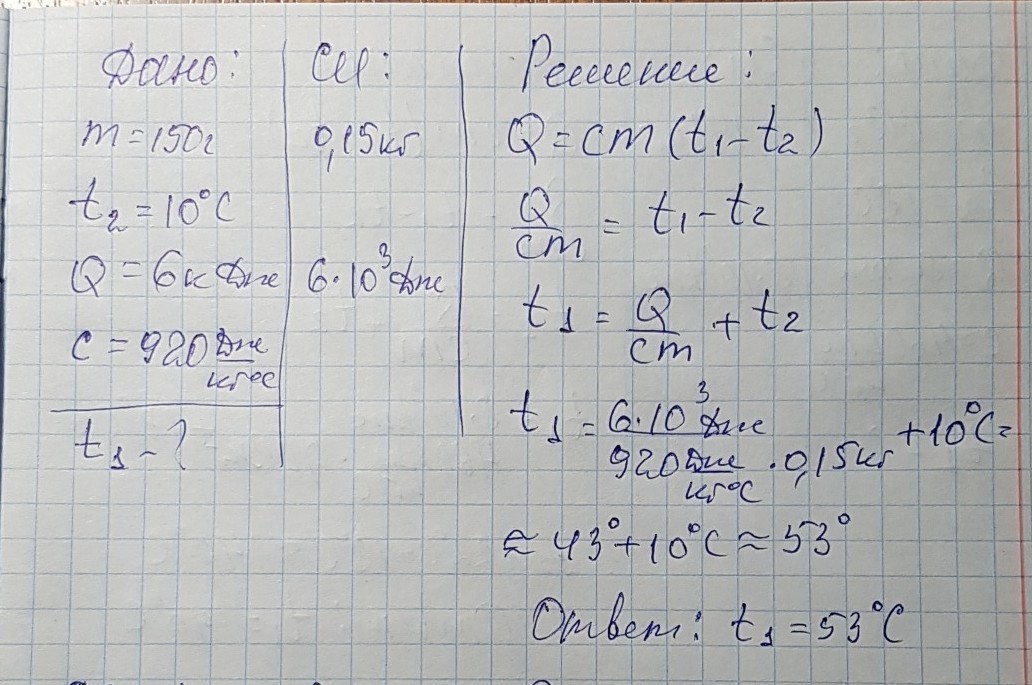 Дано:
m=150г
t₂=10°C
Q=6кДж
c=920 Дж/кг°C
t₁-?
СИ:
0,15кг
6·10³Дж
Решение:
Q=cm(t₁-t₂)
Q/cm = t₁-t₂
t₁ = Q/cm + t₂
t₁ = 6·10³Дж / 920 Дж/кг°C · 0,15кг +10°C=
≈ 43°+10°C≈53°
Ответ: t₁=53°C